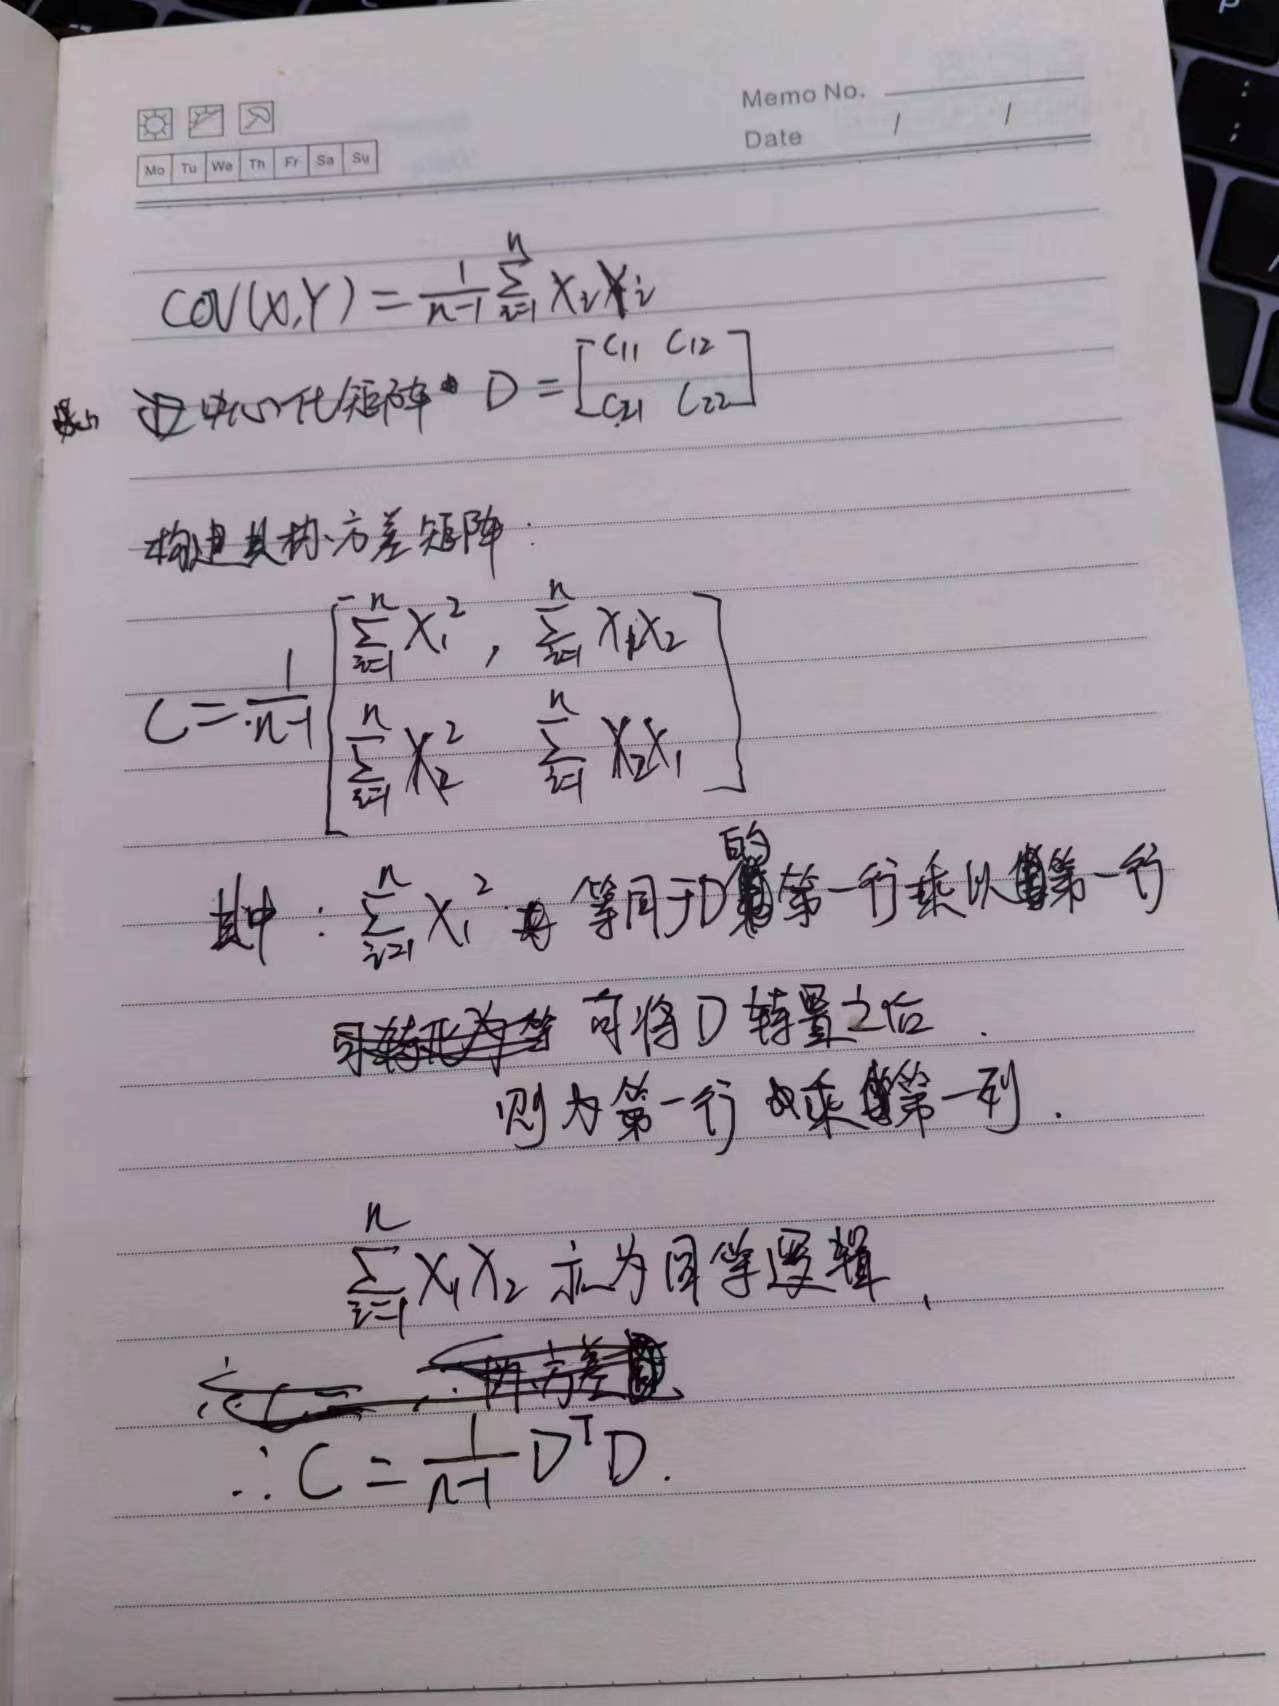 Memo No.
Mo Tu We Th Fr Sa Su
Date / /
COV(X,Y) = \frac{1}{n-1} \sum_{i=1}^{n} X_i Y_i
中心化矩阵 D = [C11 C12
C21 C22]
构建其协方差矩阵:
C = \frac{1}{n-1} [\sum_{i=1}^{n} X_1^2, \sum_{i=1}^{n} X_1X_2
\sum_{i=1}^{n} X_2^2 \sum_{i=1}^{n} X_2X_1]
其中: \sum_{i=1}^{n} X_1^2 等同于D的第一行乘以第一行
可将D转置之后.
则为第一行乘第一列.
\sum_{i=1}^{n} X_1X_2 亦为同等逻辑,
∴ C = \frac{1}{n-1} D^T D.